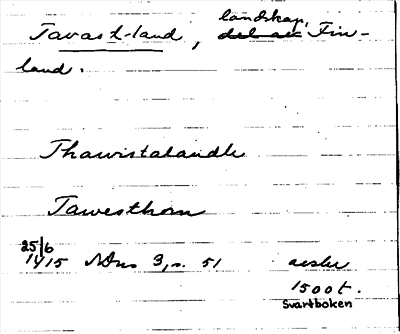 Tavast-land, landskap, del av Fin-
land.
Thawistalandh
Tawesthom
25/6
1415 3, s. 51 avskr
1500t.
Svartboken